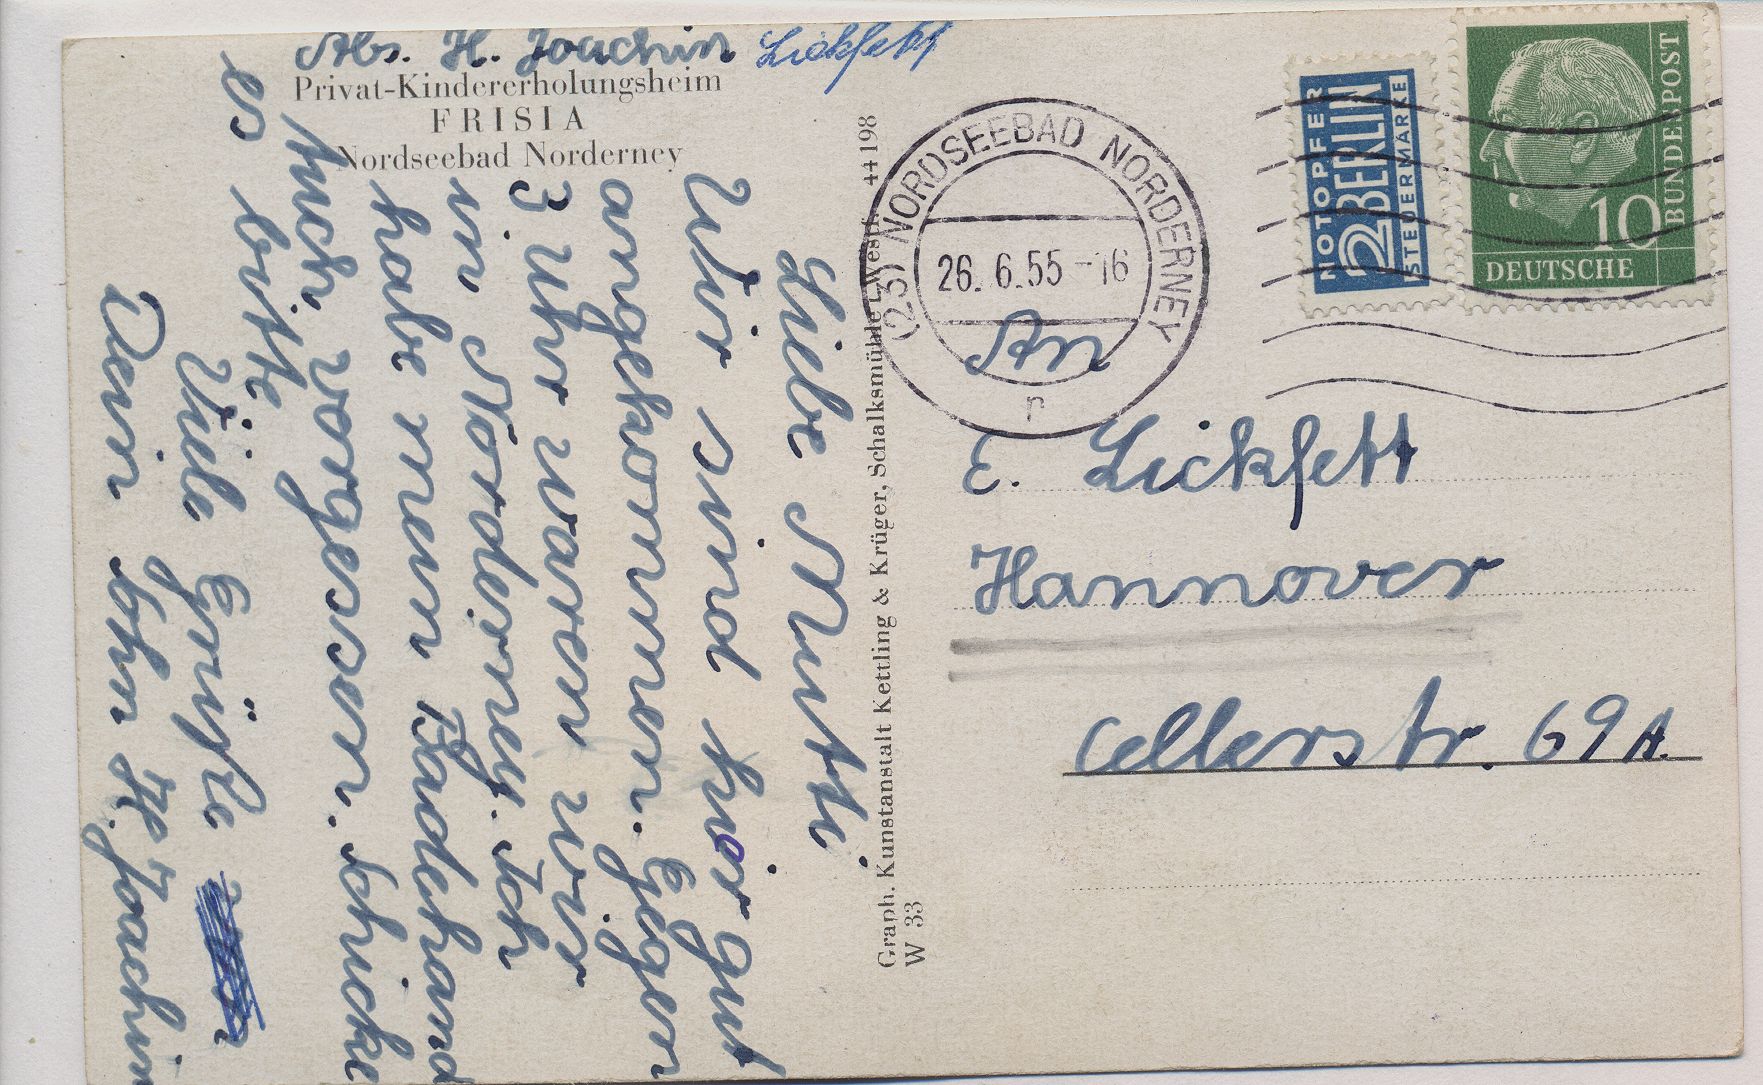 Abs. H. Joachim Lickfett
Privat-Kindererholungsheim
FRISIA
Nordseebad Norderney
Liebe Mutti
Wir sind hier gut
angekommen. Gegen
3 Uhr waren wir
in Norderney. Ich
habe mein Badehand
tuch vorgessen. Schicke
es bitte
Viele Grüße
Dein Sohn H. Joachim
Graph. Kunstanstalt Kettling & Krüger, Schalksmühle i. Westf. 44198
W 33
(23) NORDSEEBAD NORDERNEY
26. 6.55 -16
r
NOTOPFER
2 BERLIN
STEUERMARKE
10
DEUTSCHE
BUNDESPOST
An
E. Lickfett
Hannover
Cellerstr. 69 A.